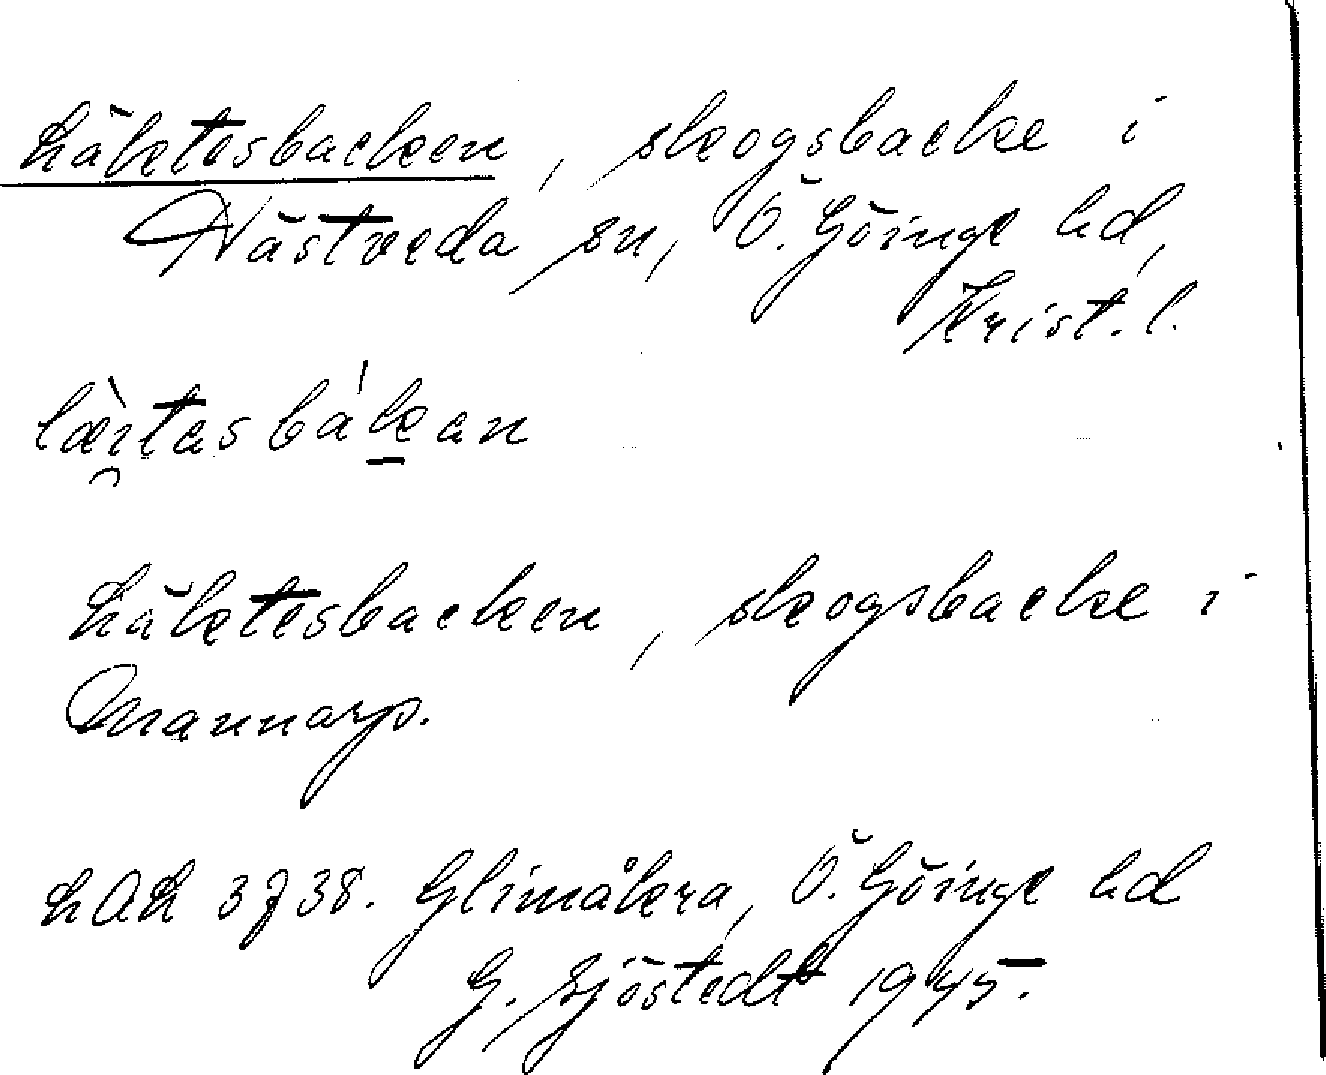 Läktesbacken, skogsbacke i
Hästveda sn, Ö. Göinge hd,
Krist. l.
læ̀i̯tasbáḵan
Läktesbacken, skogsbacke i
Mannarp.
LAL 3738. Glimåkra, Ö. Göinge hd
G. Sjöstedt 1945.